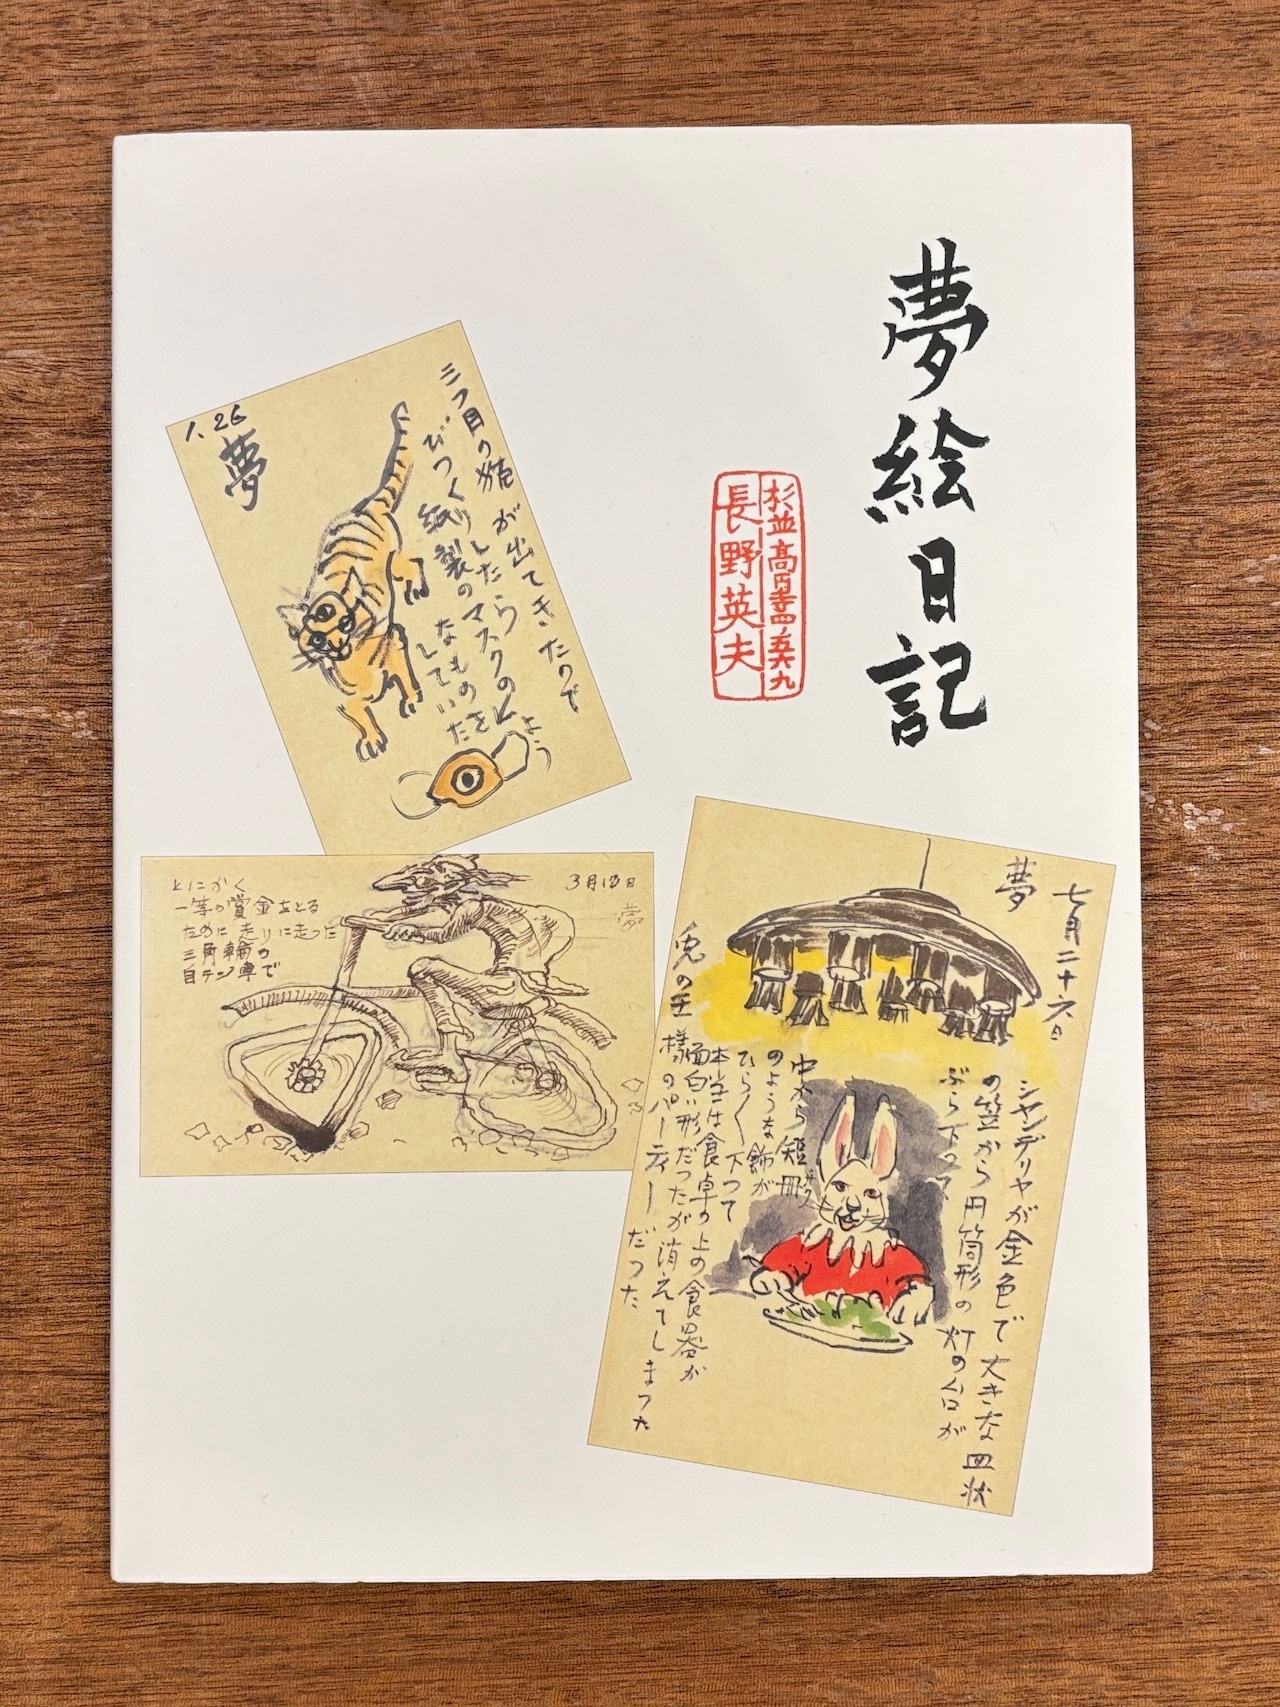 夢絵日記
杉並高円寺四ノ五六九
長野英夫
1.26
夢
三つ目の猫が出てきたので
びつくりしたら
紙製のマスクのよう
なものを
していた
とにかく
一等の賞金をとる
ために走りに走った
三角輪の
自テン車で
3月13日
夢
夢
七月二十六日
シャンデリヤが金色で大きな皿状
の笠から円筒形の灯の台が
ぶら下って
中から短冊
のような飾が
ひらひら下つて
本当は食卓の上の食器が
面白い形だつたが消えてしまつた
兎の王様のパーティーだつた